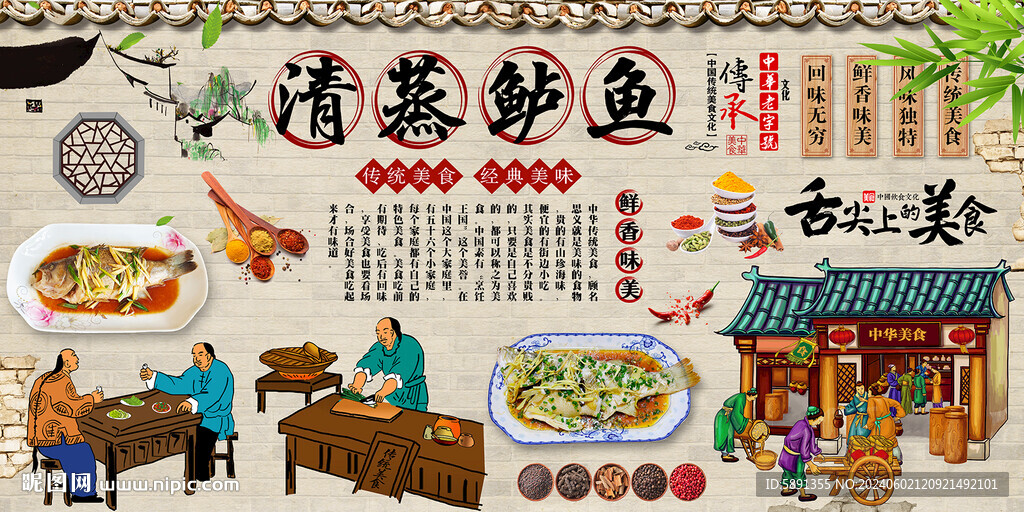 清蒸鲈鱼
【中国传统美食文化】
傳承
中华美食
中華老字號
文化
回味无穷
鲜香味美
风味独特
传统美食
传统美食 经典美味
鲜香味美
中华传统美食，顾名
思义就是美味的食物
，贵的有山珍海味，
便宜的有街边小吃。
其实美食是不分贵贱
的，只要是自己喜欢
的，都可以称之为美
食。中国素有"烹饪
王国"这个美誉。在
中国这个大家庭里，
有五十六个小家庭，
每个家庭都有自己的
特色美食。美食吃前
有期待、吃后有回味
，享受美食也要看场
合，场合好美食吃起
来才有味道。
中國飲食文化
舌尖上的美食
中华美食
传统美食
昵图网 www.nipic.com
ID:5891355 NO:20240602120921492101